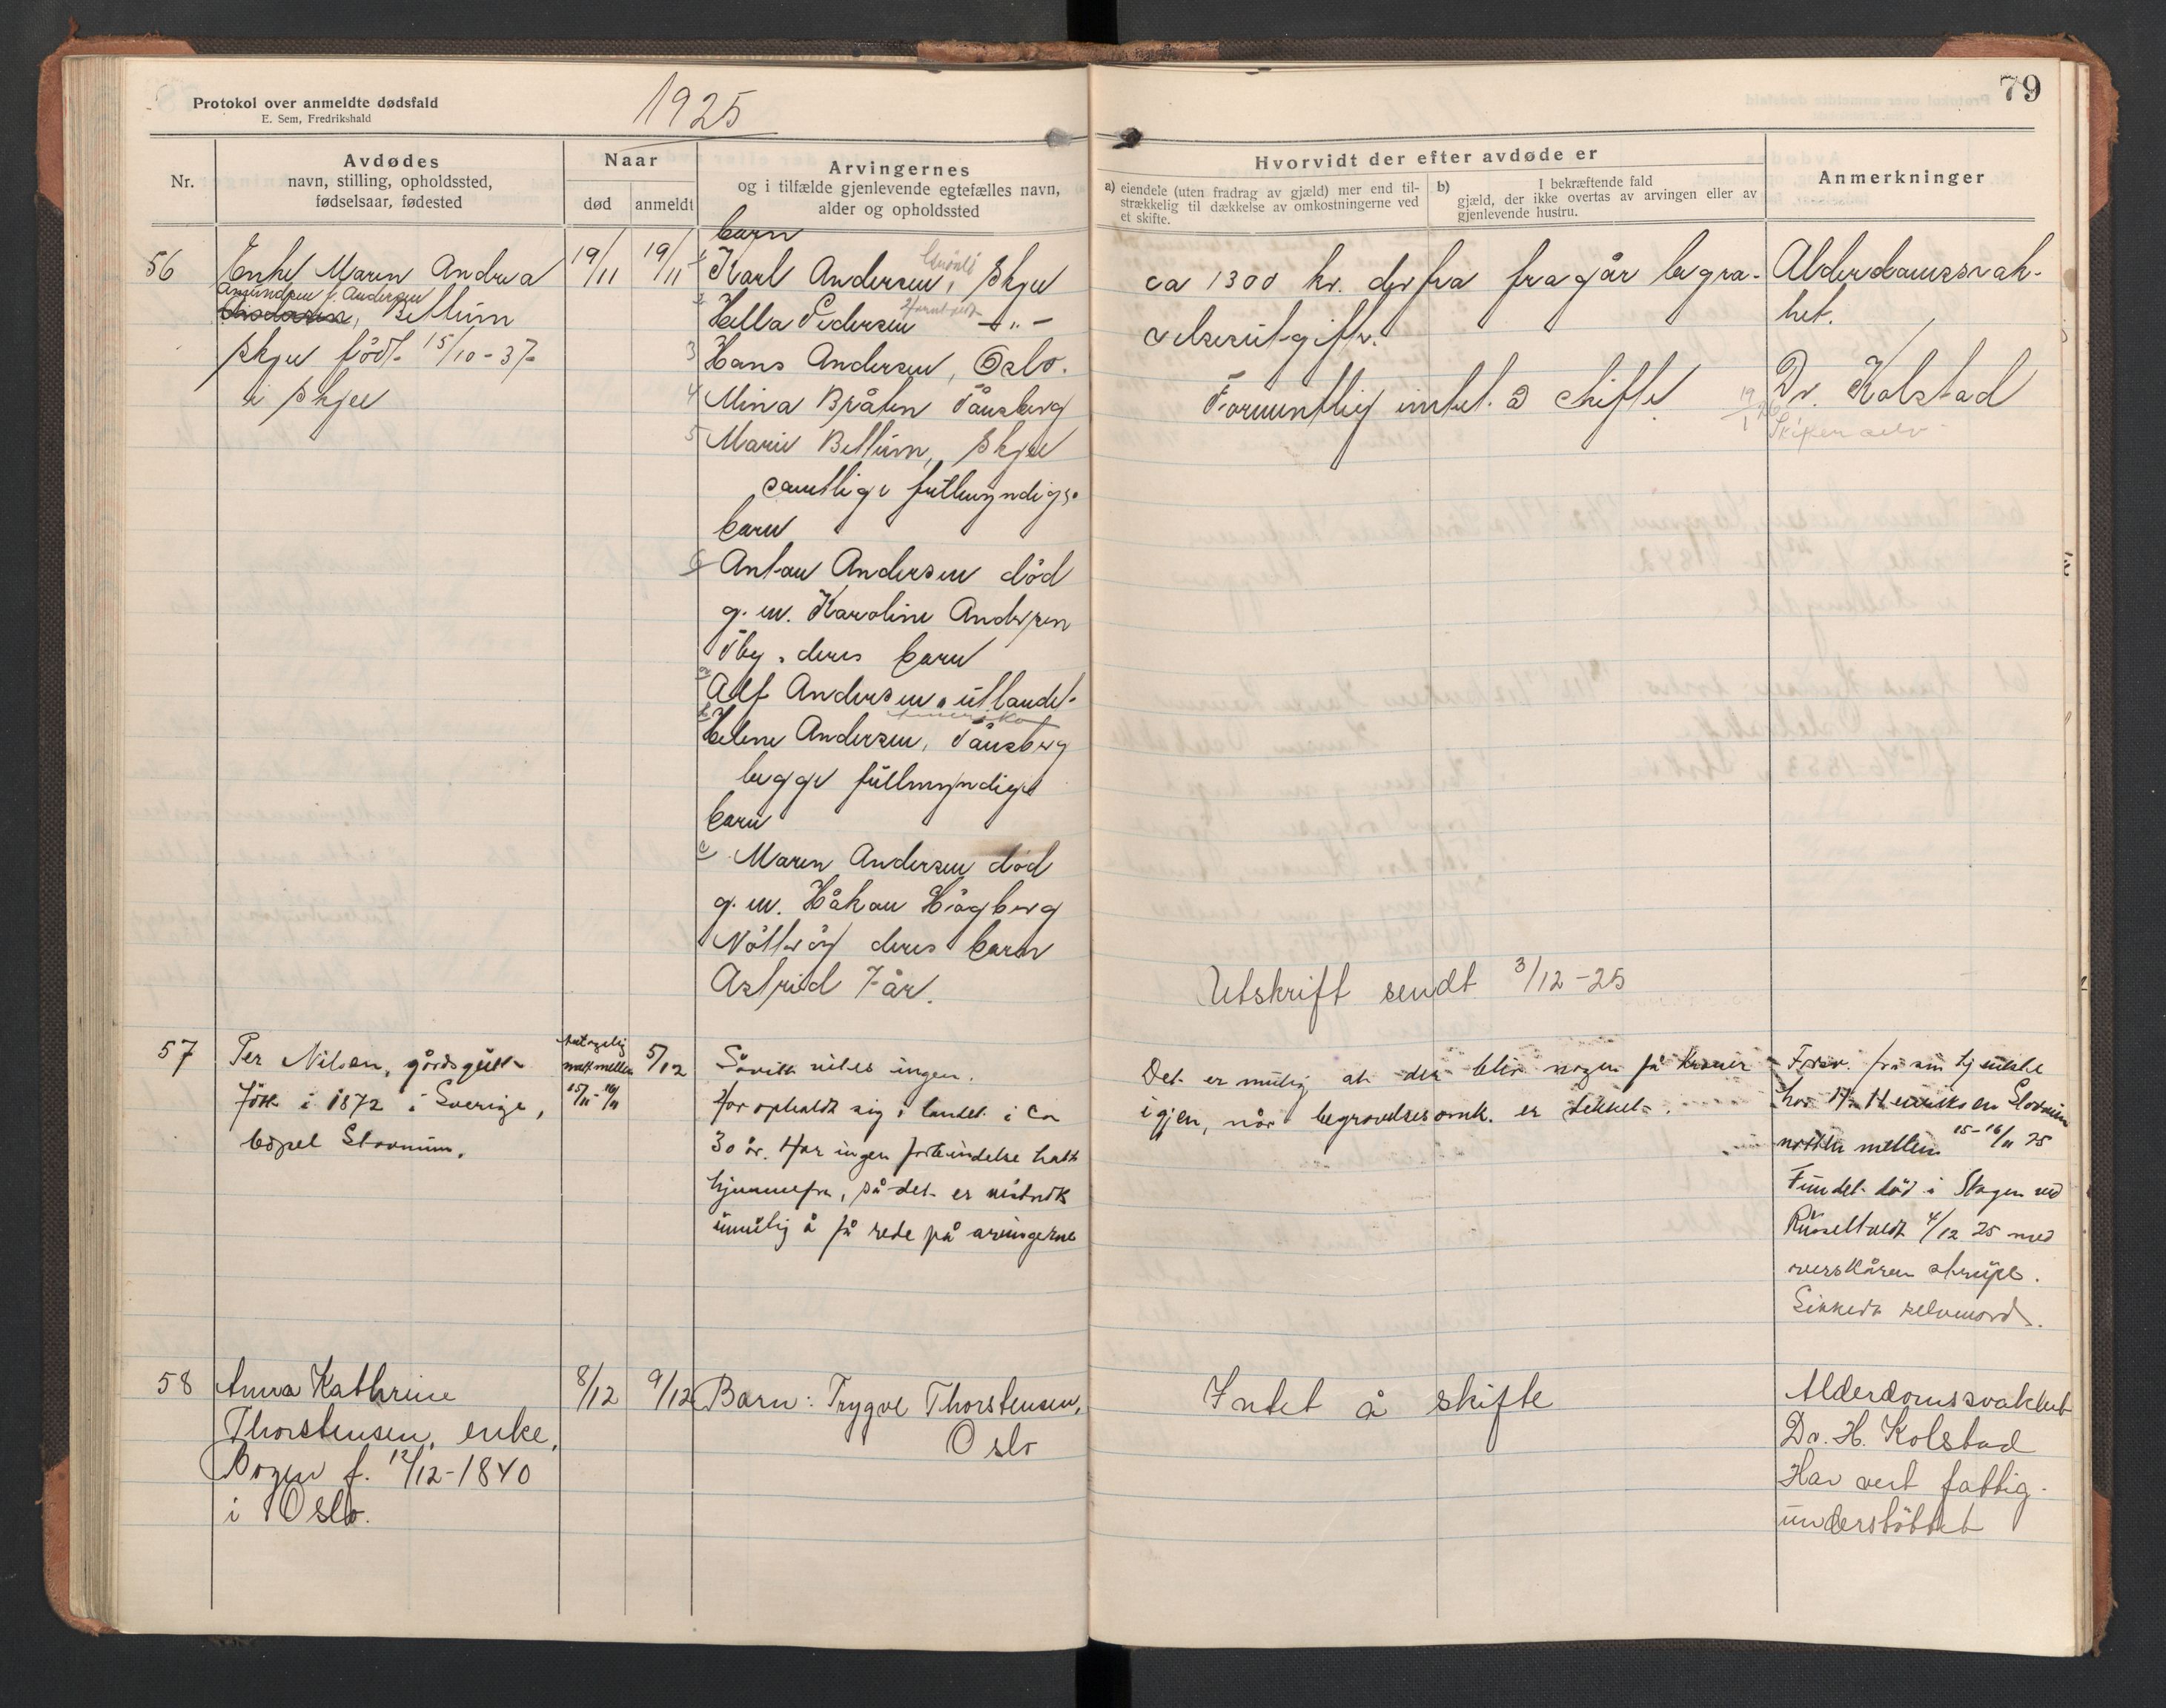 79
Protokol over anmeldte dødsfald
E. Sem, Fredrikshald
1925
Nr.
Avdødes
navn, stilling, opholdssted,
fødselsaar, fødested
Naar
død
anmeldt
Arvingernes
og i tilfælde gjenlevende egtefælles navn,
alder og opholdssted
Hvorvidt der efter avdøde er
a) eiendele (uten fradrag av gjæld) mer end til-
strækkelig til dækkelse av omkostningerne ved
et skifte.
b) I bekræftende fald
gjæld, der ikke overtas av arvingen eller av
gjenlevende hustru.
Anmerkninger
56
Enke Maren Andrea
Amundsen f. Andersen
Bellum
Skjee född 15/10-37
i Skjee
19/11
19/11
barn
1 Karl Andersen, Skjee
2 Hella Pedersen -"-
3 Hans Andersen, Oslo.
4 Mina Bråten Tönsberg
5 Marie Bellum, Skjee
samtlige fullmyndige.
barn
6 Anton Andersen död
g. m. Karoline Andersen
Tbg. deres barn
a Alf Andersen, utlandet.
Amerika
b Helene Andersen, Tönsberg
begge fullmyndige
barn
c Maren Andersen död
g. m. Håkon Högberg
Nötteröy deres barn
Astrid 7 år.
ca 1300 kr. derfra fragår begra-
velsesutgifter.
Formentlig intet å skifte
Utskrift sendt 3/12-25
Alderdomssvak-
het.
Dr. Kolstad
19/1
Skifter selv
57
Per Nilsen, gårdsgutt
Född i 1872 i Sverige,
bopel Stormum.
Antagelig
natt mellem
15/11-16/11
5/12
Såvitt vites ingen.
Har opholdt sig i landet i ca
30 år. Har ingen forbindelse hatt
hjemmefra, så det er visstnok
umulig å få rede på arvingerne
Det er mulig at der blir nogen få kroner
igjen, når begravelsesomk. er dekket.
Forsv. fra sin tjeneste
hos H. Henriksen Stormum
natten mellem 15-16/11 25
Fundet död i Skogen ved
4/12 25 med
overskåren strupe.
Sikkert selvmord.
58
Anna Kathrine
Thorstensen, enke,
Bogen f. 12/12-1840
i Oslo.
8/12
9/12
Barn: Trygve Thorstensen,
Oslo
Intet å skifte
Alderdomssvakhet
Dr. H. Kolstad
Har vert fattig-
understöttet